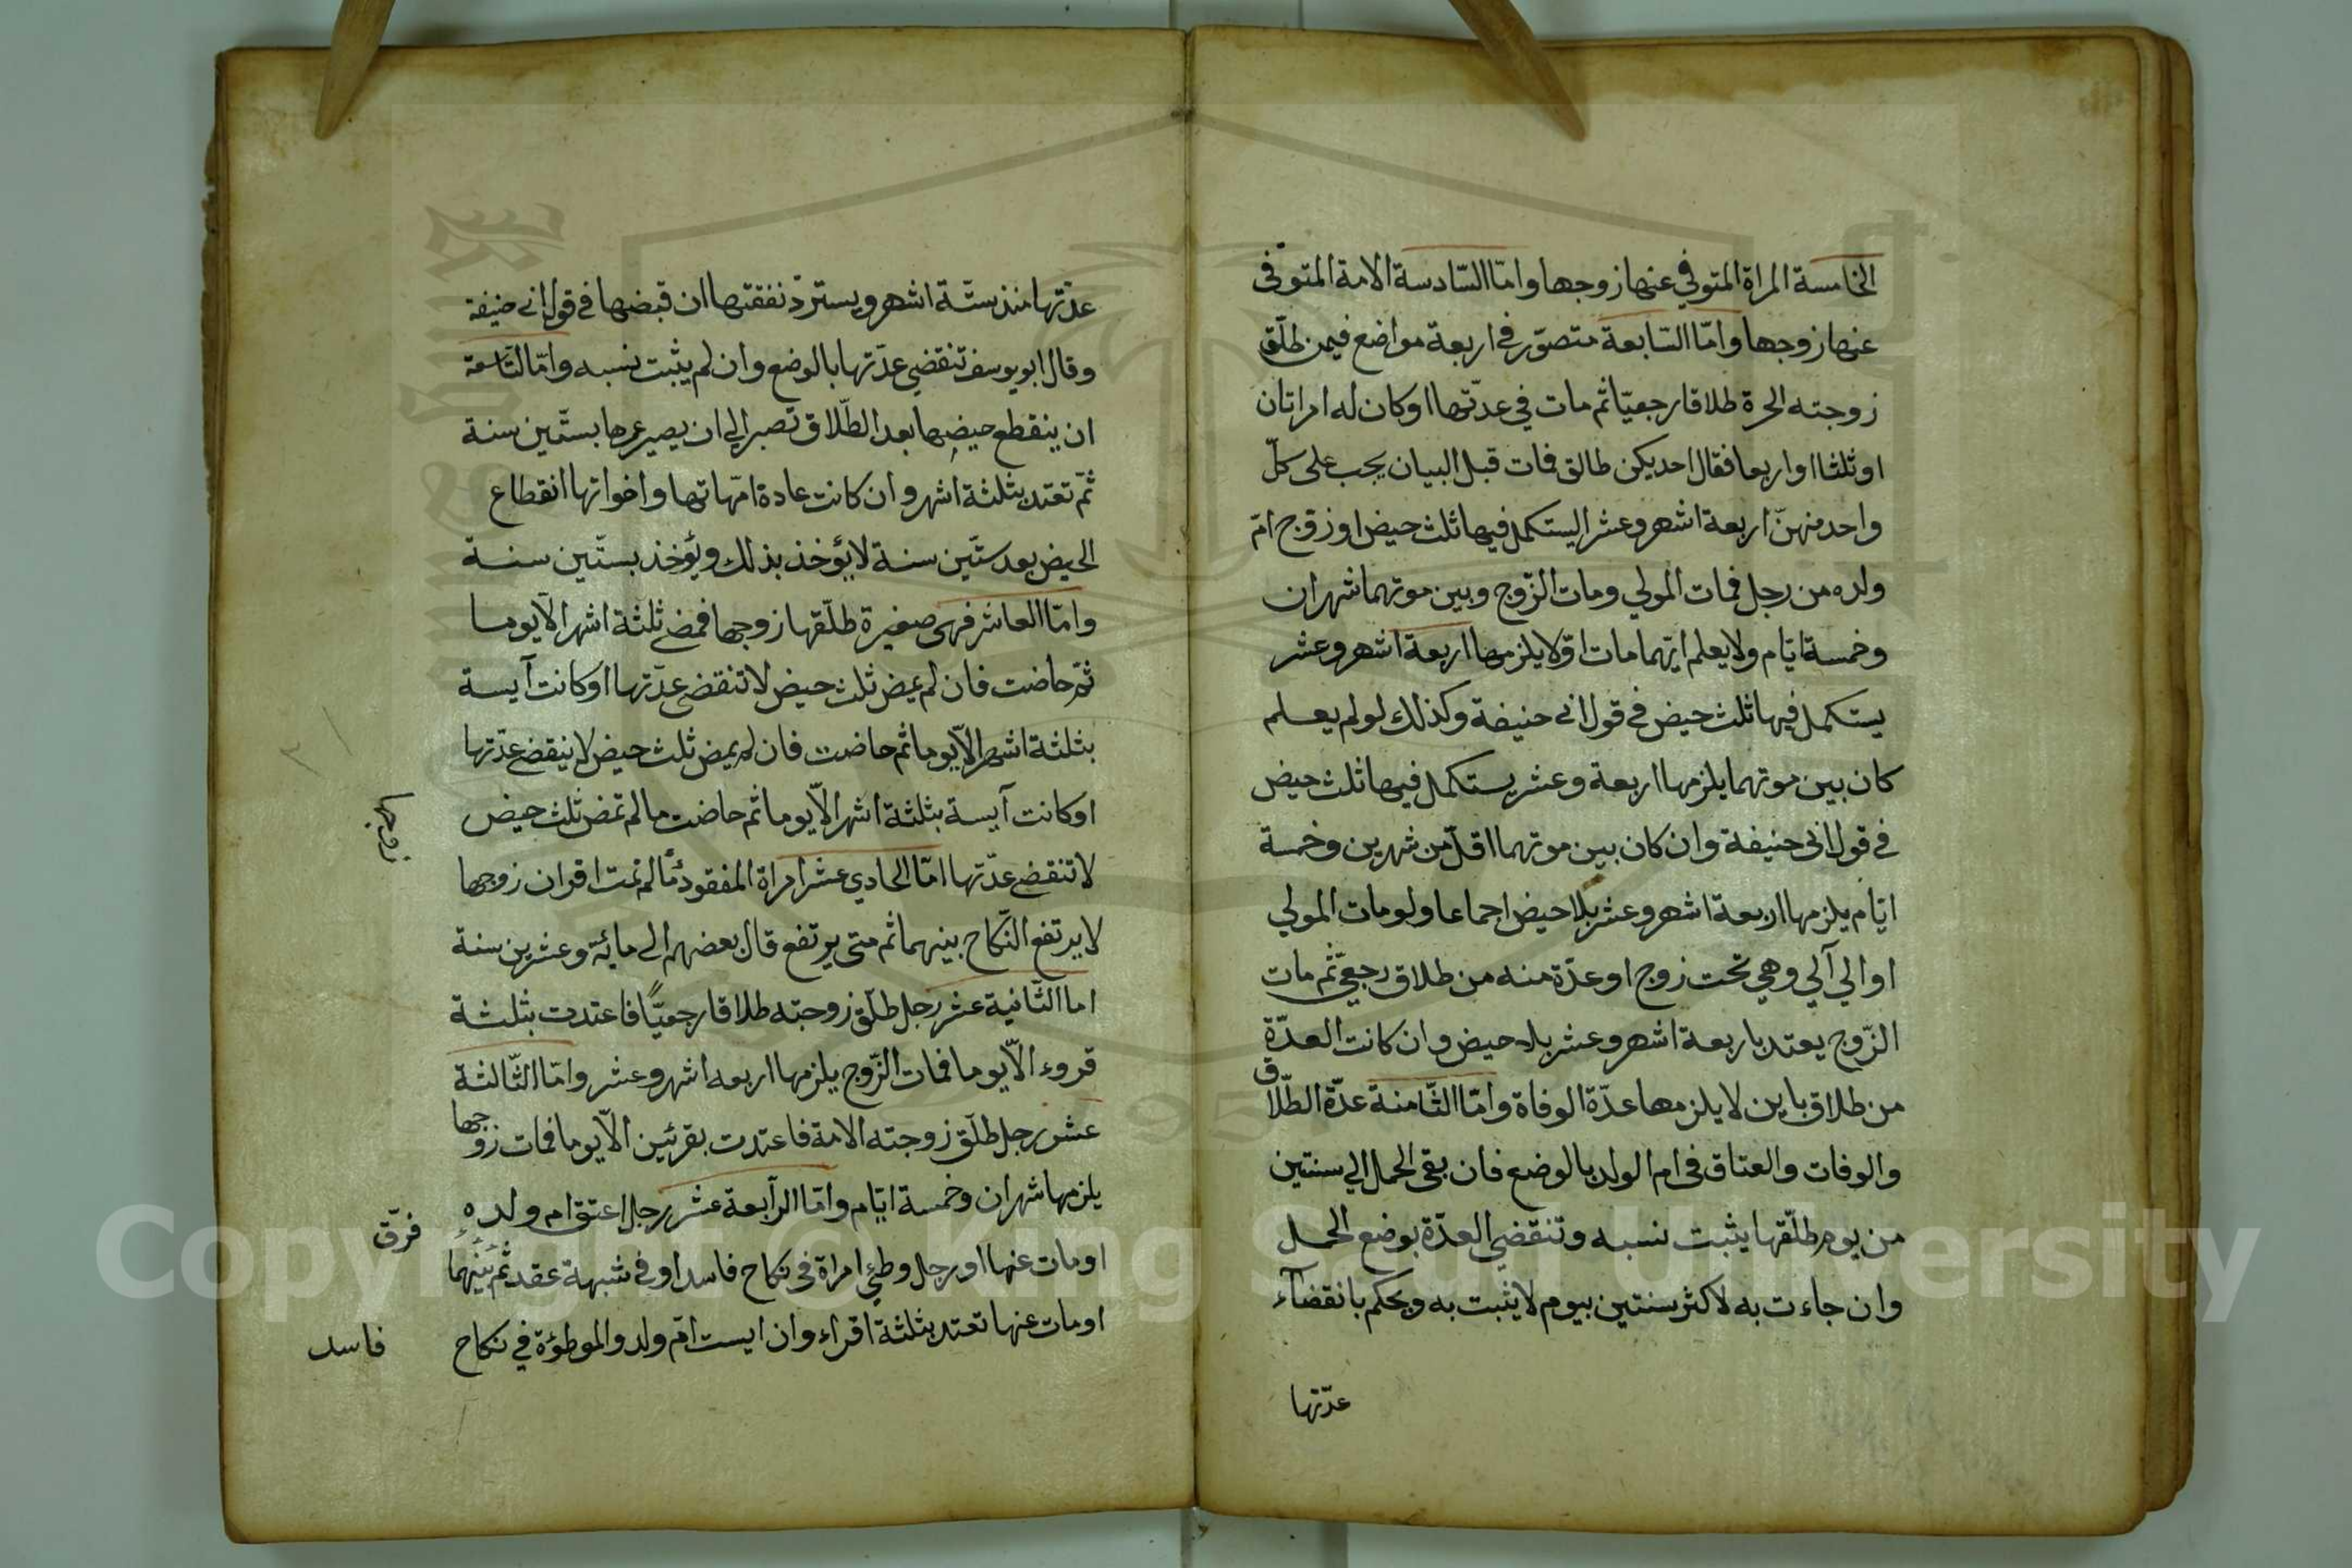 الخامسة المراة المتوفي عنها زوجها وامّا السّادسة الامة المتوفى
عنها زوجها وامّا السّابعة متصوّر في اربعة مواضع فيمن طلّق
زوجته الحرة طلاقا رجعيّا ثم مات في عدّتها او كان له امراتان
او ثلثا او اربعا فقال احديكن طالق فمات قبل البيان يجب على كلّ
واحد منهنّ اربعة اشهر وعشرا ليستكمل فيها ثلث حيض او زوّج امّ
ولده من رجل فمات المولي ومات الزّوج وبين موتهما شهران
وخمسة ايّام ولا يعلم ايّهما مات اوّلا يلزمها اربعة اشهر وعشر
يستكمل فيها ثلث حيض في قول ابى حنيفة وكذلك لو لم يعلم
كان بين موتهما يلزمها اربعة وعشر يستكمل فيها ثلث حيض
في قول ابى حنيفة وان كان بين موتهما اقلّ من شهرين وخمسة
ايّام يلزمها اربعة اشهر وعشر بلا حيض اجماعا ولو مات المولي
او الي آلي وهي تحت زوج او عدّة منه من طلاق رجعيّ ثم مات
الزّوج يعتد باربعة اشهر وعشر بلا حيض وان كانت العدّة
من طلاق باين لا يلزمها عدّة الوفاة وامّا الثّامنة عدّة الطّلاق
والوفات والعتاق فى ام الولد بالوضع فان بقى الحمل الي سنتين
من يوم طلّقها يثبت نسبه وتنقضي العدّة بوضع الحمل
وان جاءت به لاكثر سنتين بيوم لا يثبت به ويحكم بانقضآء
عدّتها
عدّتها منذ ستّة اشهر ويستردّ نفقتها ان قبضها في قول ابى حنيفة
وقال ابو يوسف تنقضي عدّتها بالوضع وان لم يثبت نسبه وامّا التّاسعة
ان ينقطع حيضها بعد الطّلاق تصبر الي ان يصير عمرها بستّين سنة
ثمّ تعتد بثلثة اشهر وان كانت عادة امّهاتها واخواتها انقطاع
الحيض بعد ستّين سنة لا يؤخذ بذلك ويؤخذ بستّين سنة
وامّا العاشر فهى صغيرة طلّقها زوجها فمضى ثلثة اشهر الّا يوما
ثمّ حاضت فان لم يمض ثلث حيض لا تنقضى عدّتها او كانت آيسة
بثلثة اشهر الّا يوما ثم حاضت فان لم يمض ثلث حيض لا ينقضى عدّتها
او كانت آيسة بثلثة اشهر الّا يوما ثم حاضت ما لم تمض ثلث حيض
لا تنقضى عدّتها امّا الحادي عشر امراة المفقود ما لم تمت اقران زوجها
زوجها
لا يرتفع النّكاح بينهما ثم متى يرتفع قال بعضهم الى مائة وعشرين سنة
اما الثّانية عشر رجل طلّق زوجته طلاقا رجعيّا فاعتدت بثلثة
قروء الّا يوما فمات الزّوج يلزمها اربعه اشهر وعشر وامّا الثّالثة
عشر رجل طلّق زوجته الامة فاعتدت بقرئين الّا يوما فمات زوجها
يلزمها شهران وخمسة ايّام وامّا الرّابعة عشر رجل اعتق ام ولده
فرّق
او مات عنها او رجل وطئ امراة فى نكاح فاسد او فى شبهة عقد ثم بينهما
او مات عنها تعتد بثلثة اقراء وان ايست امّ ولد والموطؤة في نكاح
فاسد
Copyright © King Saud University
1957